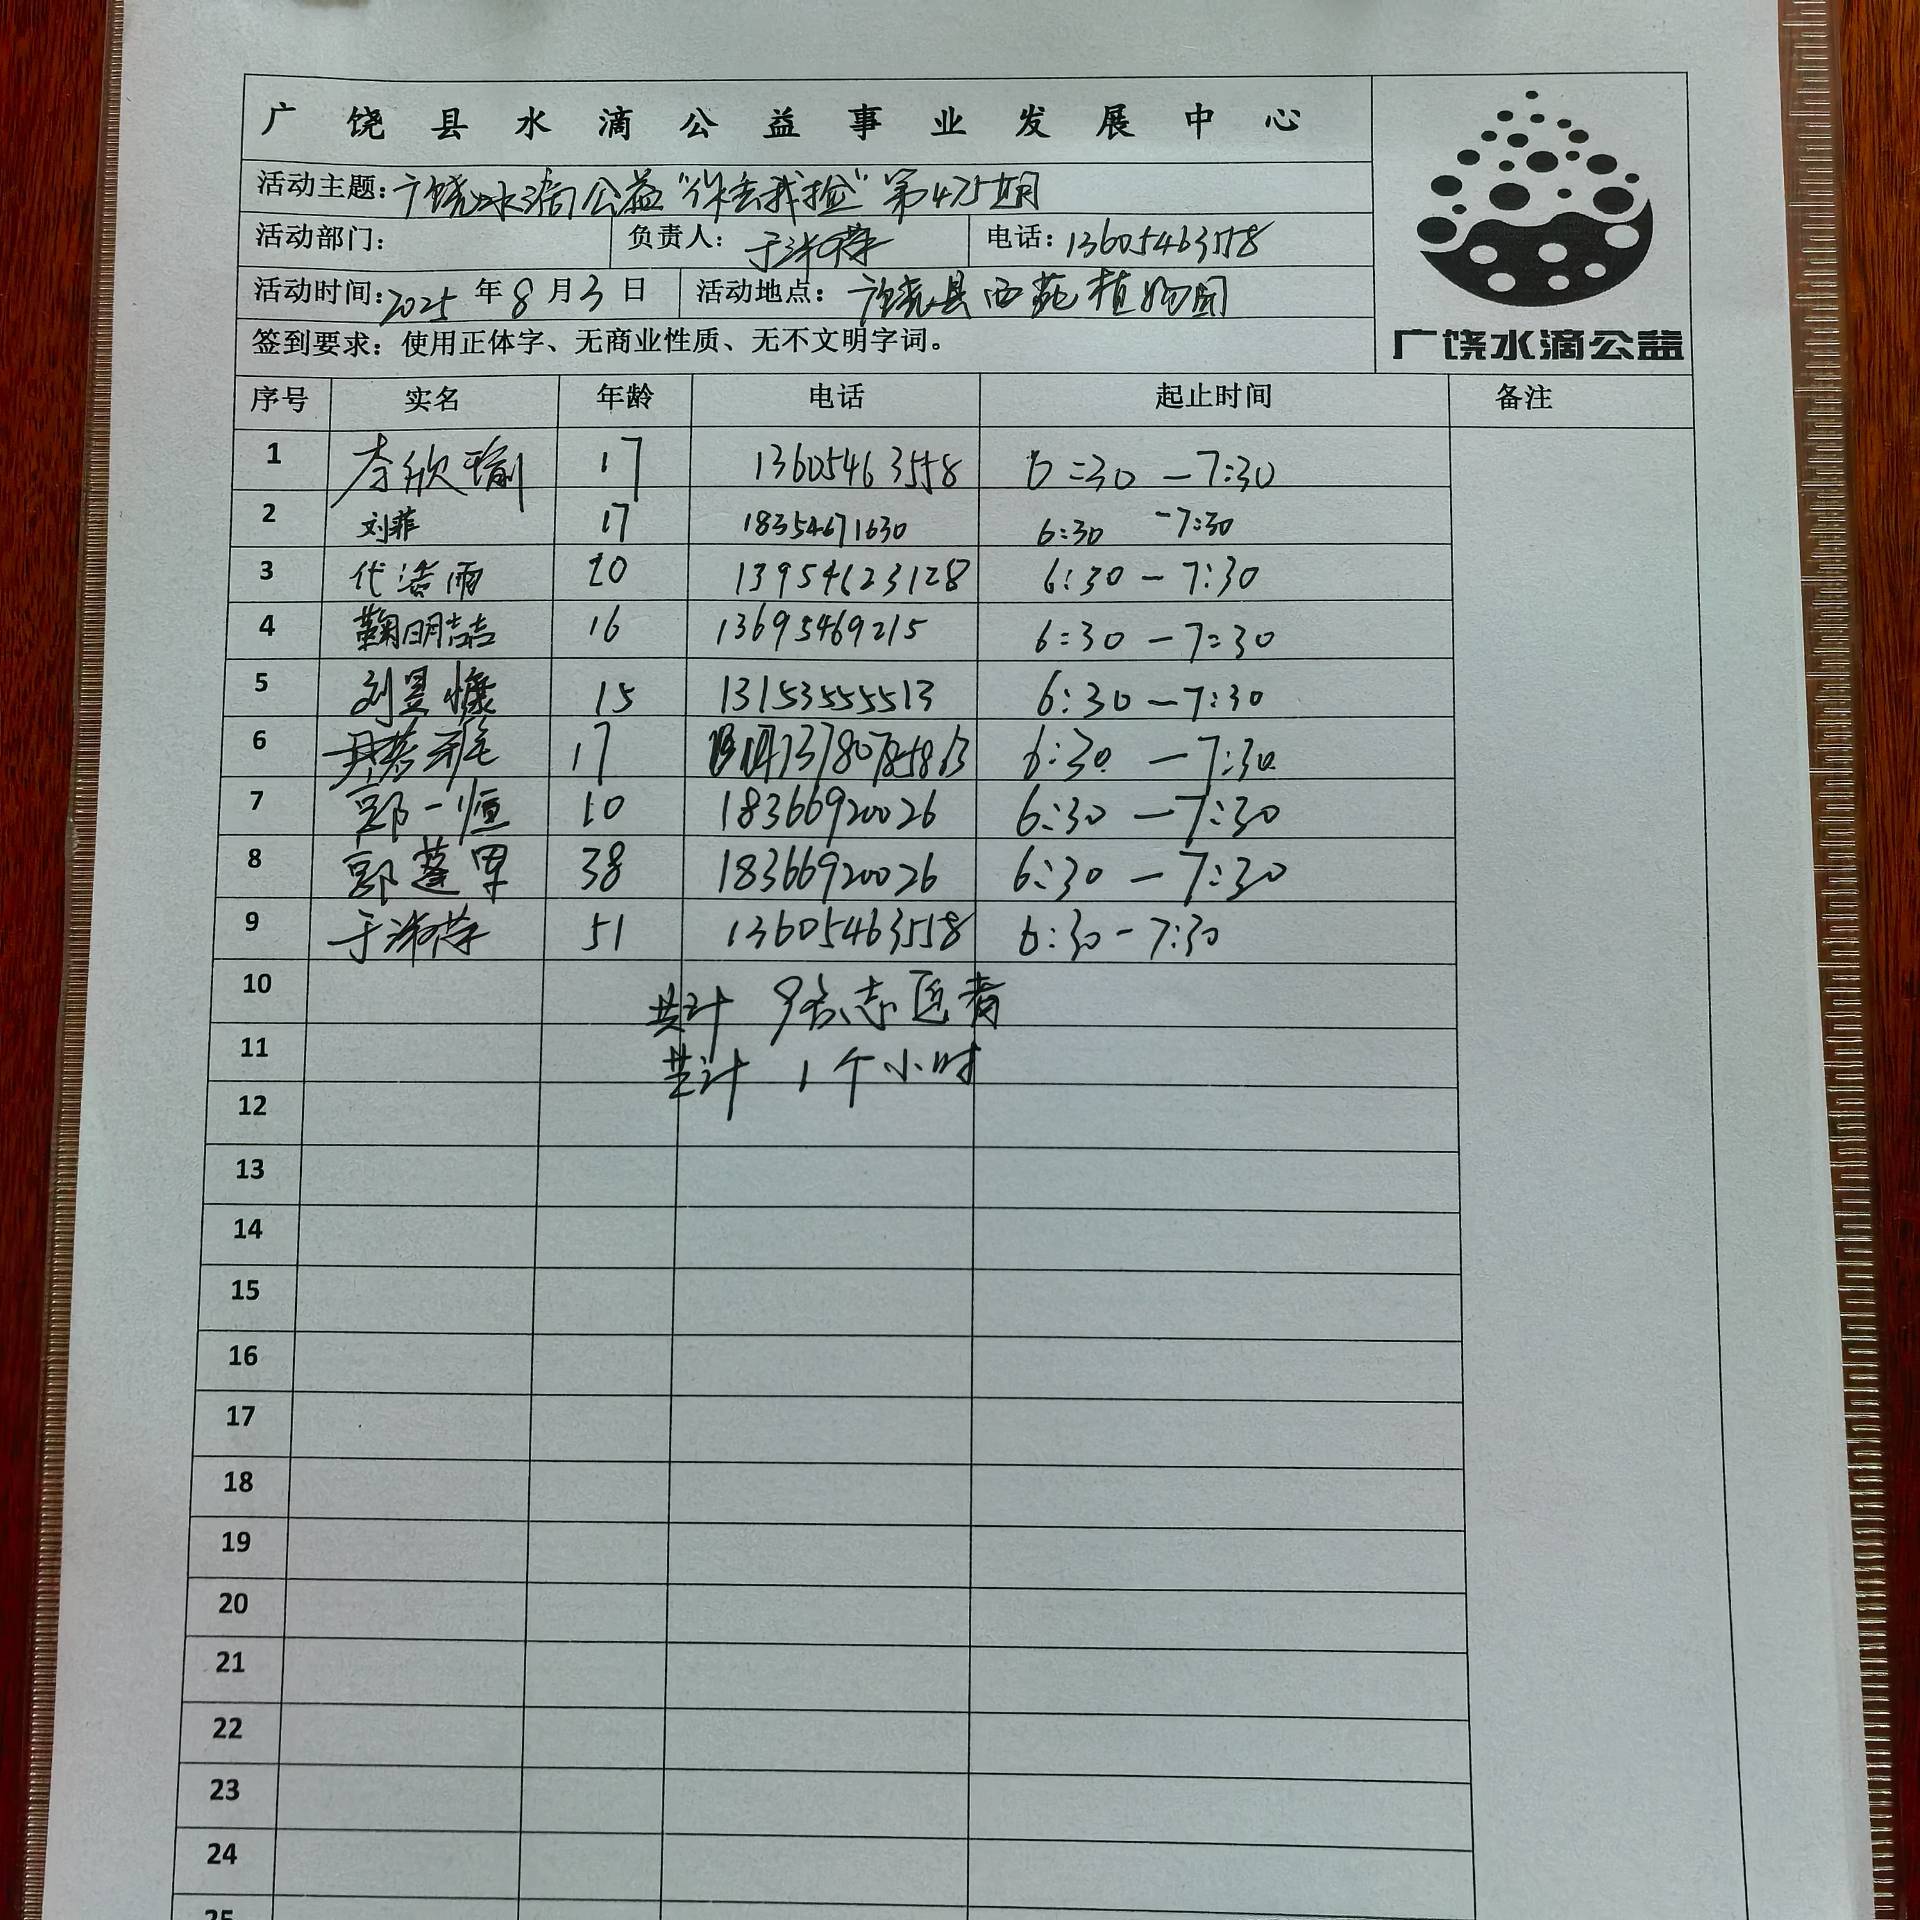 广饶县水滴公益事业发展中心
活动主题:广饶水滴公益“你丢我捡”第475期
活动部门: 负责人: 于 电话:13605463558
活动时间:2025年8月3日 活动地点:广饶县西苑植物园
签到要求:使用正体字、无商业性质、无不文明字词。
广饶水滴公益
序号 实名 年龄 电话 起止时间 备注
1 李欣瑜 17 13605463558 6:30-7:30
2 刘菲 17 18354671630 6:30-7:30
3 代浩雨 20 13954623128 6:30-7:30
4 鞠明喆 16 13695469215 6:30-7:30
5 刘昱慷 15 13153555513 6:30-7:30
6 尹 雅 17 13780785863 6:30-7:30
7 郭一恒 10 18366920026 6:30-7:30
8 郭蓬 38 18366920026 6:30-7:30
9 于 51 13605463558 6:30-7:30
10 共计 9名志愿者
11 共计 1个小时
12
13
14
15
16
17
18
19
20
21
22
23
24
25